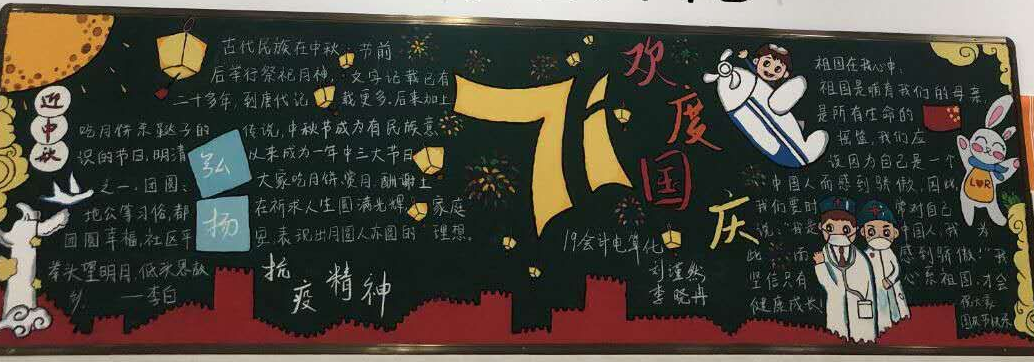 迎中秋
古代民族在中秋节前
后举行祭祀月神,文字记载已有
二十多年,到唐代记载更多,后来加上
吃月饼杀鞑子的传说,中秋节成为有民族意
识的节日,明清以来成为一年中三大节日
之一,团圆、大家吃月饼赏月、酬谢土
地公等习俗,都在祈求人生圆满光辉,家庭
团圆幸福,社区平安,表现出月圆人亦圆的理想。
举头望明月,低头思故
乡。——李白
弘扬
抗疫精神
71
欢度国庆
19会计电算化
李晓冉
祖国在我心中,
祖国是哺育我们的母亲
是所有生命的
摇篮,我们应
该因为自己是一个
中国人而感到骄傲,因此
我们要时常对自己
说:“我是中国人,我为
此而感到骄傲!”我
坚信只有心系祖国,才会
健康成长!
祝大家
国庆节快乐
LVR